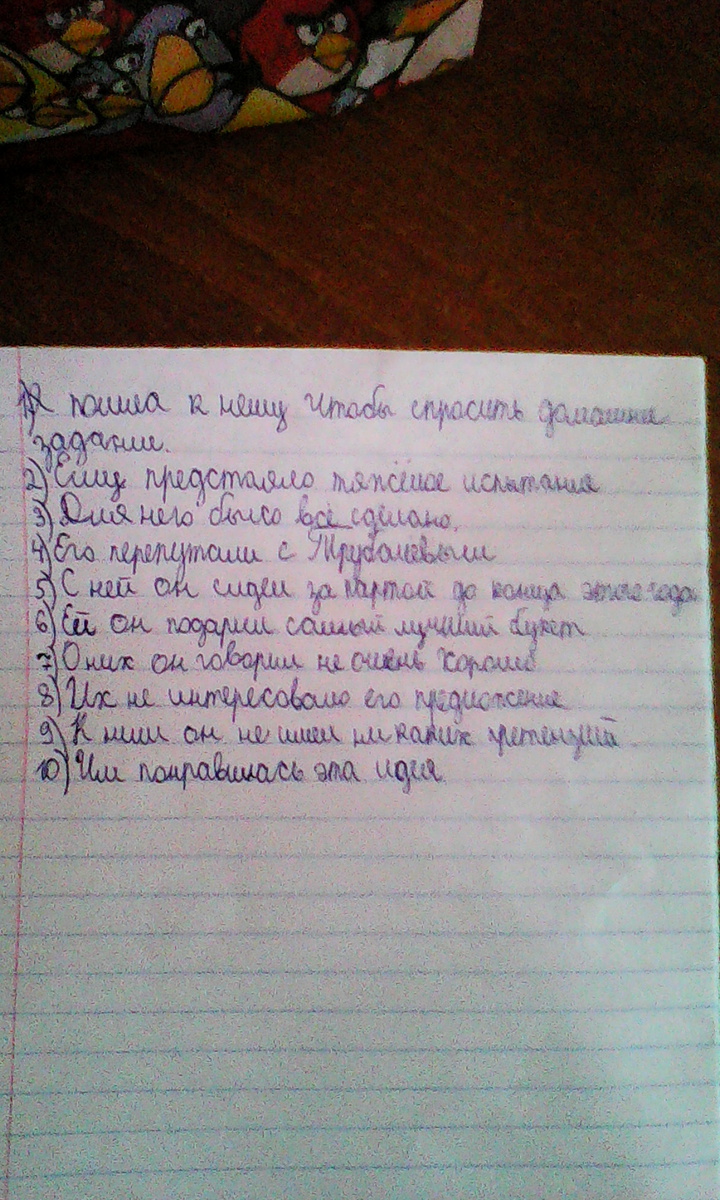 1) Я пошла к нему чтобы спросить домашнее
задание.
2) Ему предстояло тяжёлое испытания
3) Для него было всё сделано.
4) Его перепутали с Трубачёвым
5) С ней он сидел за партой до конца этого года
6) Ей он подарил самый лучший букет
7) О них он говорил не очень хорошо
8) Их не интересовало его предложение
9) К ним он не имел ни каких претензий.
10) Им понравилась эта идея